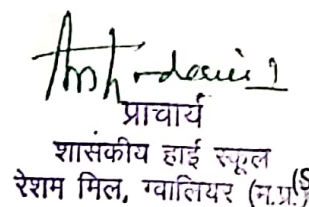 प्राचार्य
शासकीय हाई स्कूल
रेशम मिल, ग्वालियर (म.प्र.)